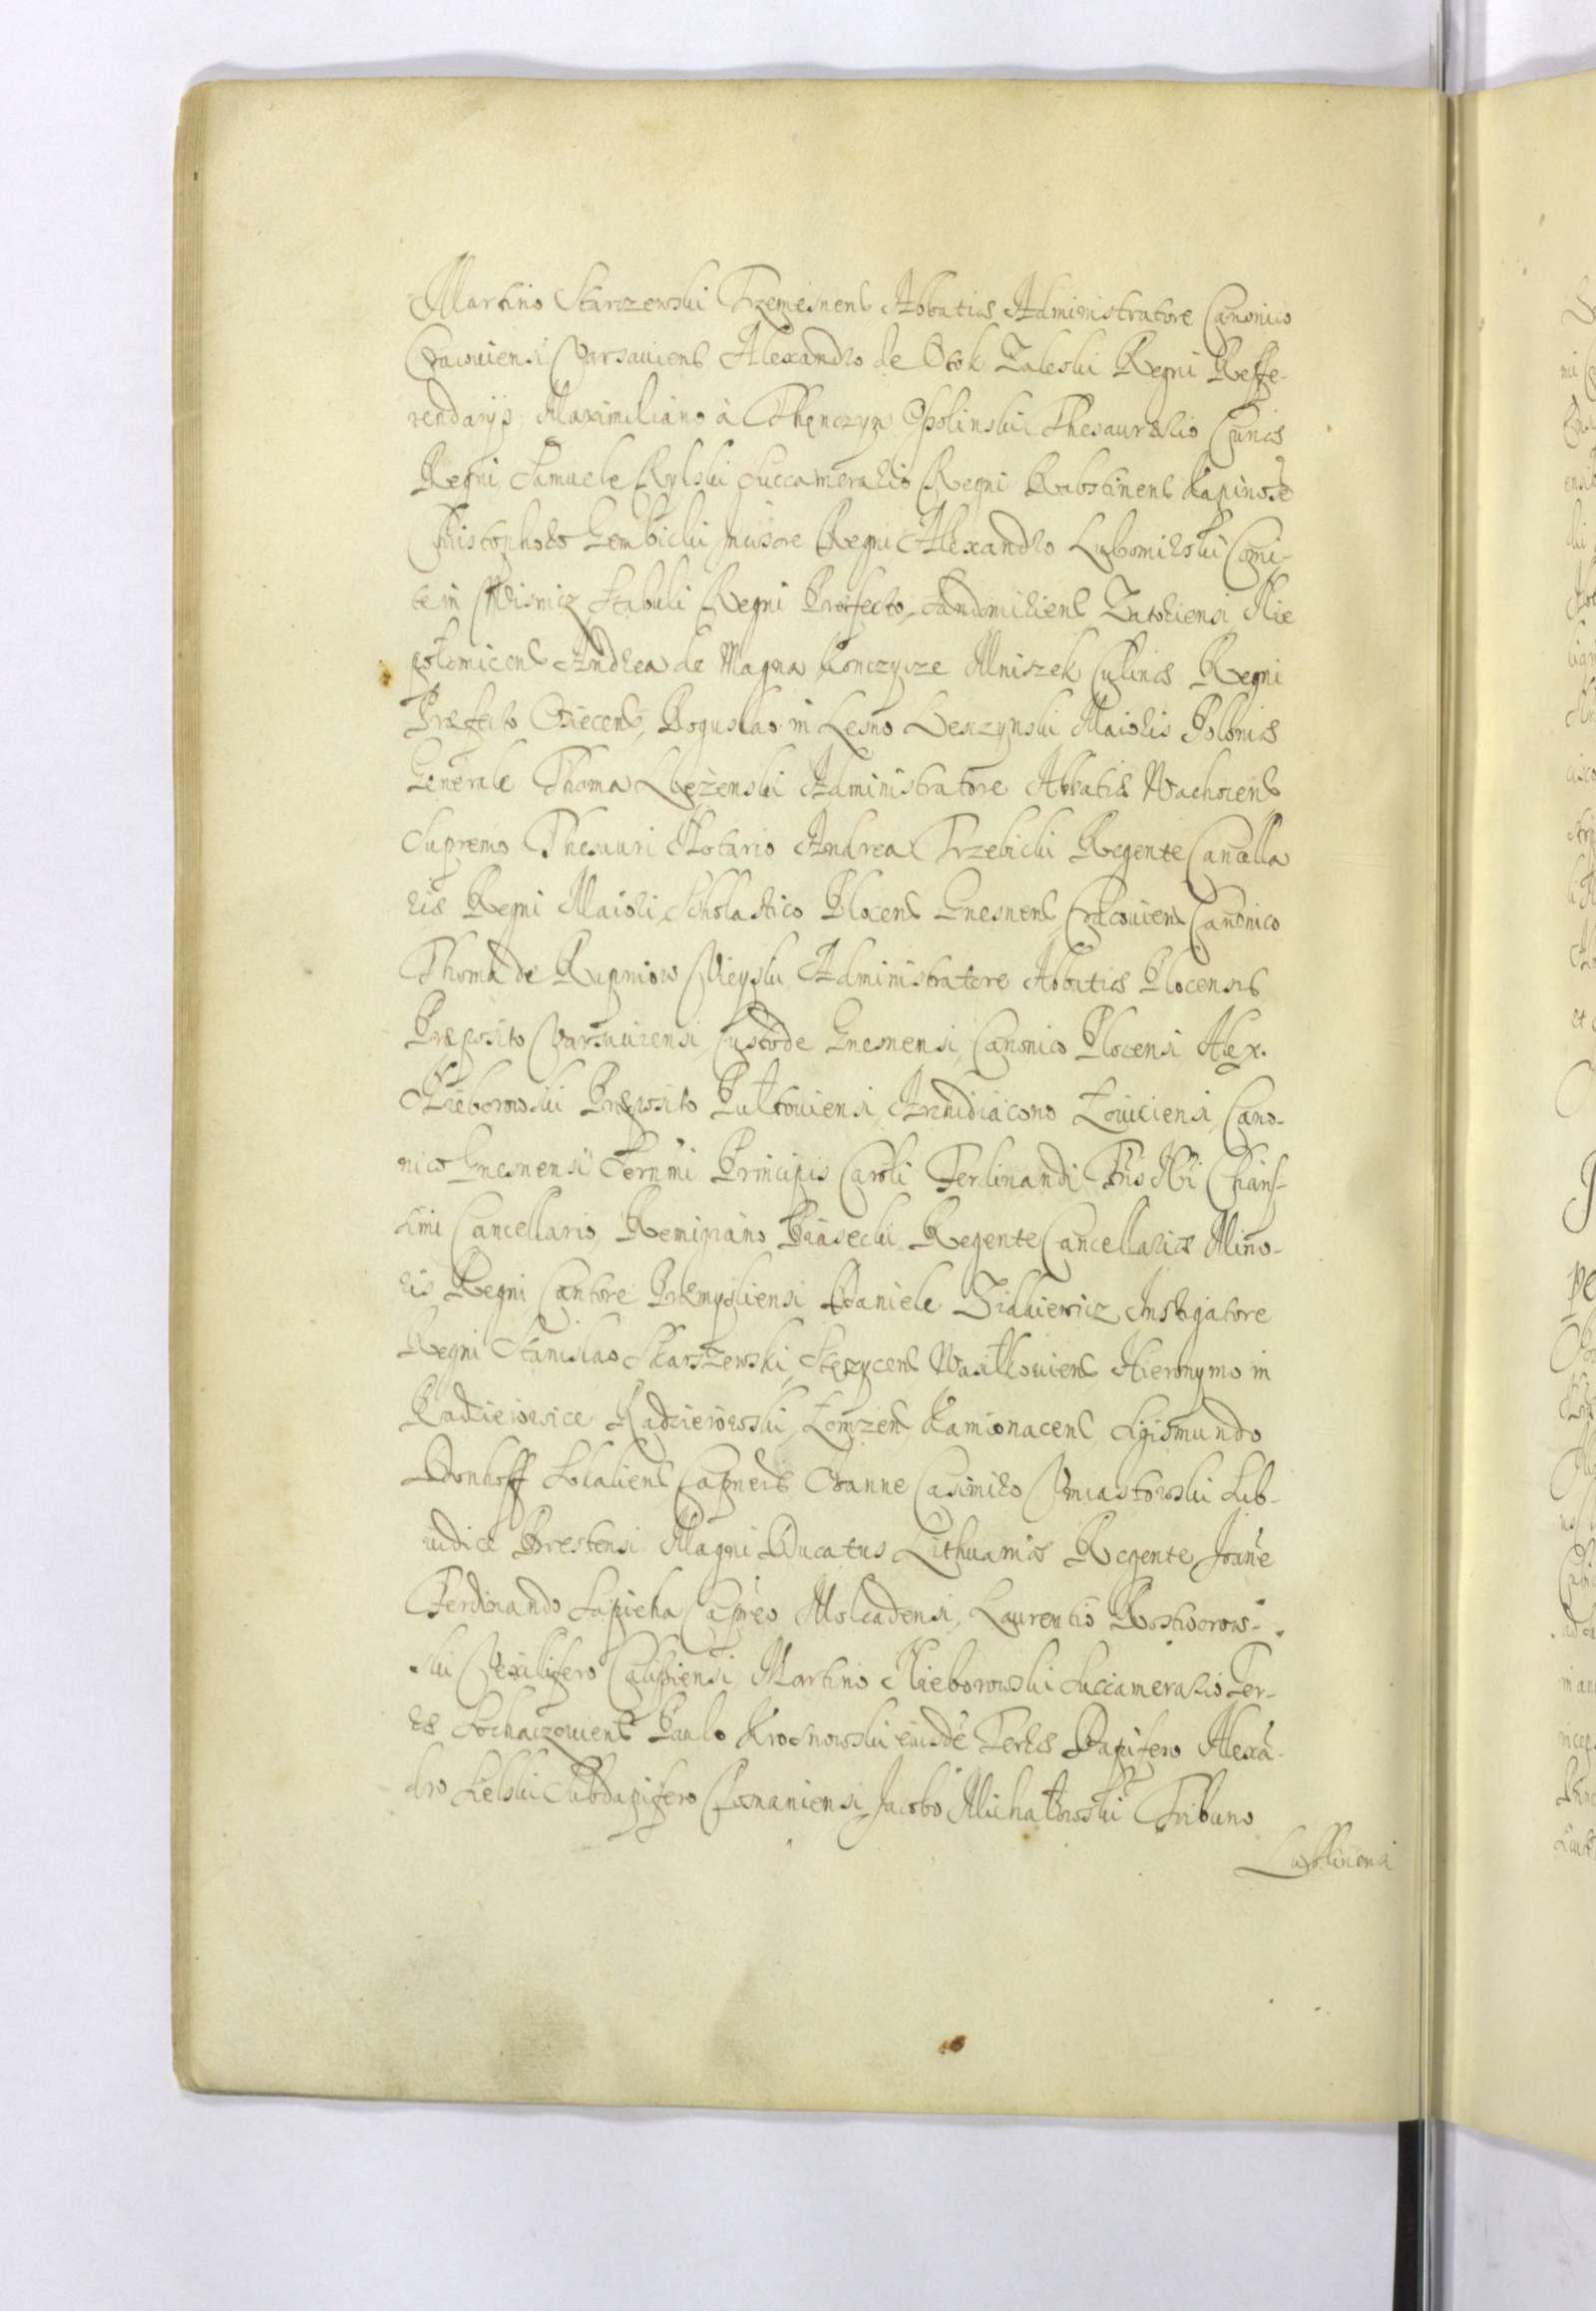 Martino Skarszewski Trzemesnens Abbatiæ Administratore Canonico
Cracouiensi Varsauiens Alexandro de Otok Zaleski Regni Reffe-
rendarijs Maximiliano à Thenczyn Ossolinski Thesaurario Curiæ
Regni Samuele Rylski Succamerario Regni Rabstinens Kapinos
Christophoro Gembicki Incisore Regni Alexandro Lubomirski Comi-
te in Wisnicz Stabuli Regni Præfecto Sandomiriens Zatoriensi Nie
polomicens Andrea de Magna Konczycze Mniszek Culinæ Regni
Præfecto Boguslao in Lesno Leszczynski Maioris Poloniæ
Generale Thoma Lezenski Administratore Abbatiæ Wachocens
Supremo Thesauri Notario Andrea Trzebicki Regente Cancella
riæ Regni Maiori Scholastico Plocens Gnesnens Cracouiens Canonico
Thoma de Rupniow Vieyski Administratore Abbatiæ Plocensis
Præposito Varsauiensi Custode Gnesnensi Canonico Plocensi Alex.
Nieborowski Præposito Pultouiensi Archidiacono Louiciensi Cano-
nico Gnesnensi Sernmi Principis Caroli Ferdinandi
Cancellario, Remigiano Piasecki Regente Cancellariæ Mino-
ris Regni Cantore Præmysliensi Daniele Zitkiewicz Instigatore
Regni Stanislao Skarszewski Stęzycens Wasilkouiens Hieronymo in
Radzieiowice Radzieiowski Łomzens Kamionacens Sigismundo
Donhoff Sokaliens Capneis Joanne Casimiro Vmiastowski Sub-
iudice Brestensi Magni Ducatus Lithuaniæ Regente Joane
Ferdinando Sapieha Capneo Molcadensi, Laurentio Rostworow-
ski Vexilifero Calissiensi Martino Nieborowski Succamerario Ter-
ræ Sochaczouiens Paulo Krosnowski eiusde Terræ Dapifero Alexa-
dro Sielski Subdapifero Posnaniensi Jacobo Michałowski Tribuno
Lublinensi